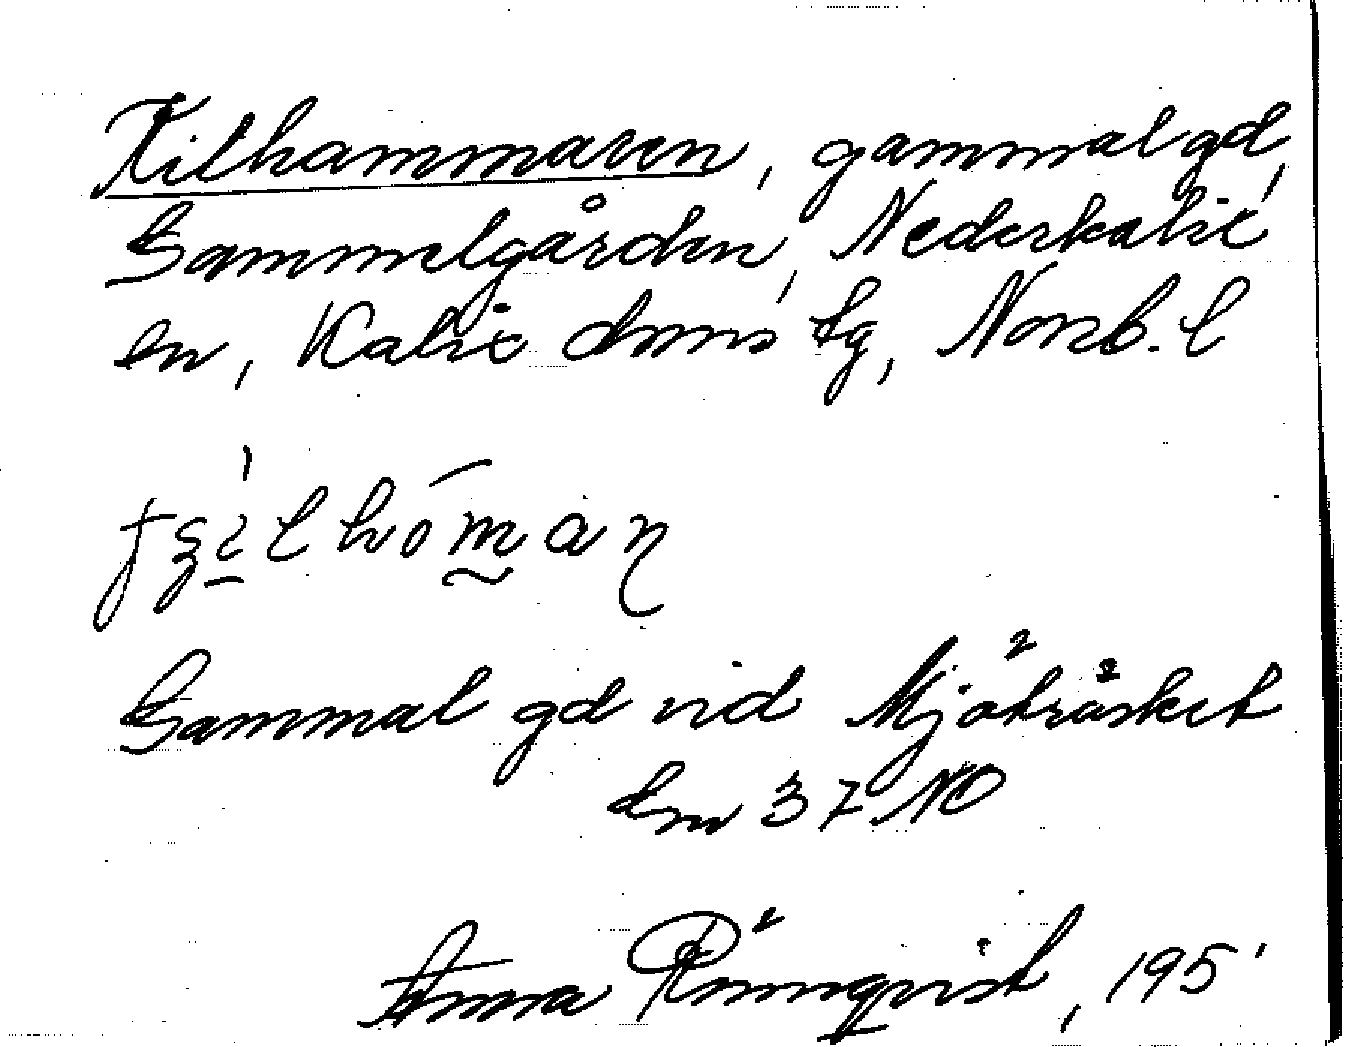 Kilhammaren, gammal gd,
Gammelgården, Nederkalix
en, Kalix dmns tg, Norrb. l
Gammal gd vid Mjöträsket
dm 37 NO
Anna Rönnqvist, 195